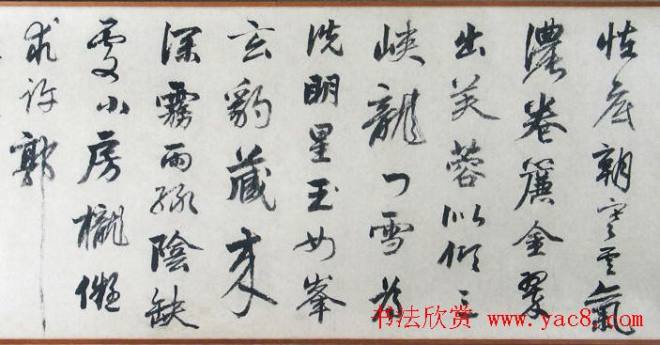 怪底朝寒雲氣
濃卷簾金翠
出芙蓉似傾三
峽龍門雪為
洗明星玉女峯
玄豹藏來
深霧雨綠陰缺
處小房櫳儗
求許郭
书法欣赏 www.yac8.com